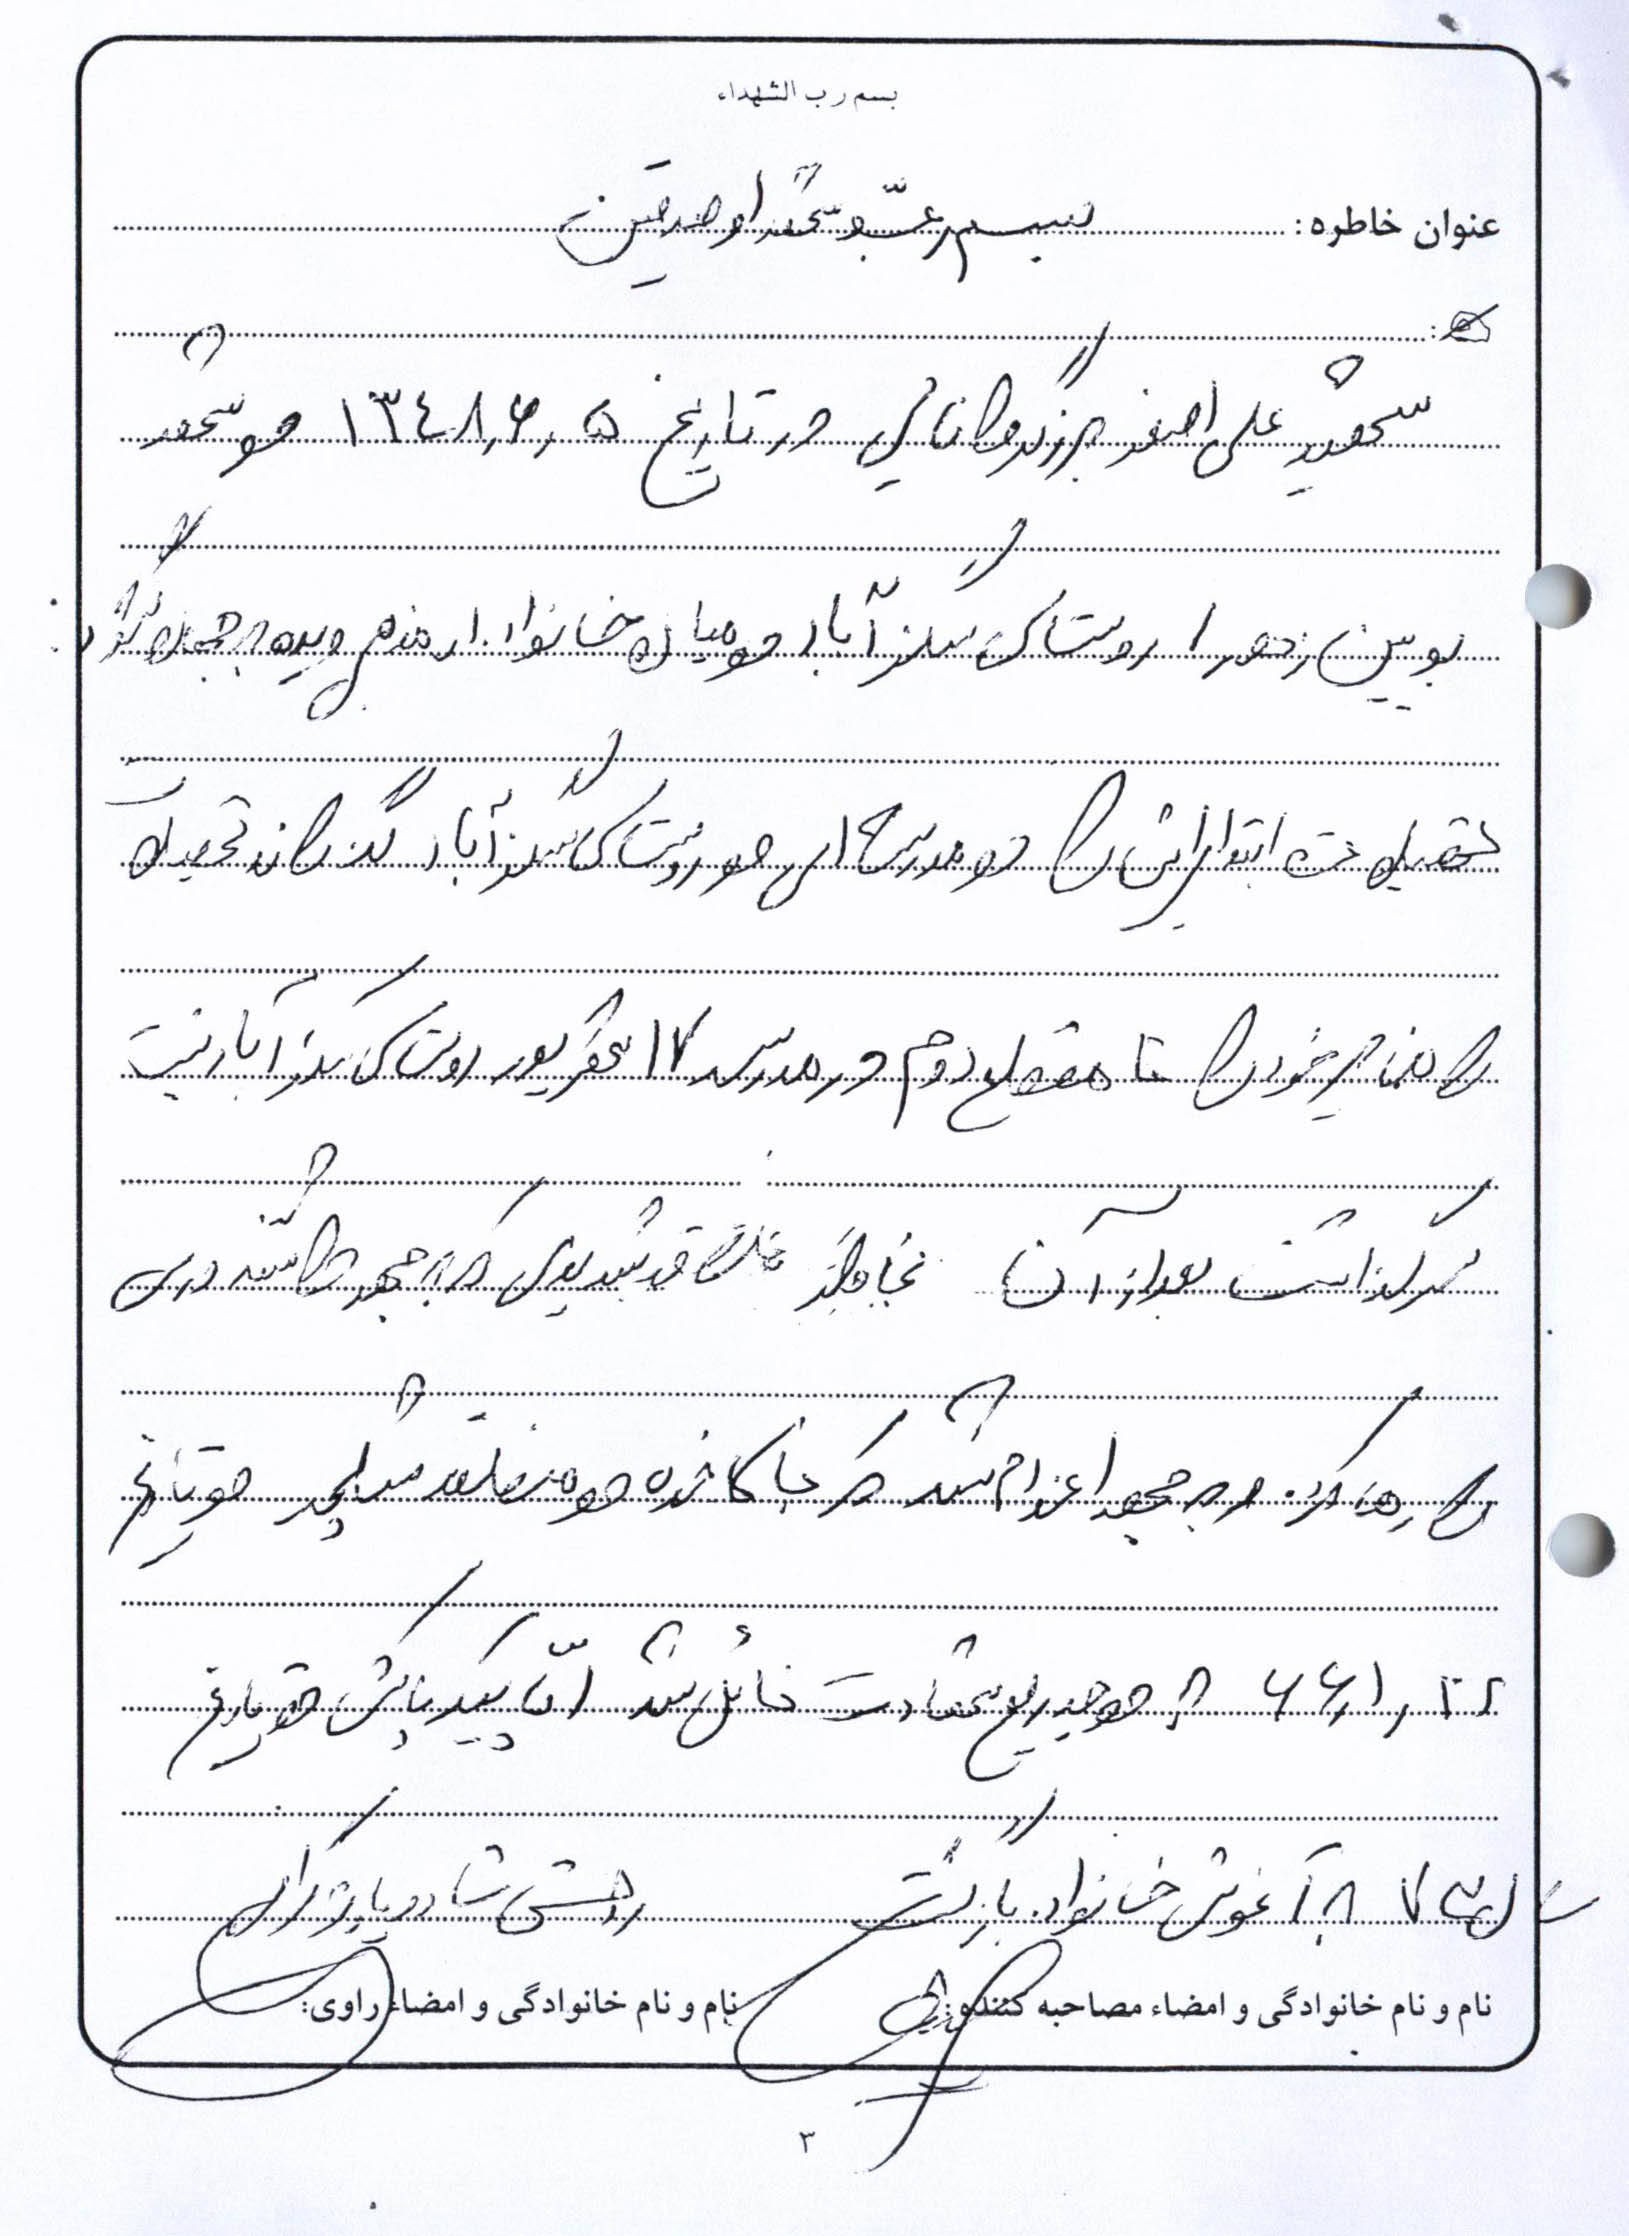 بسم رب الشهداء
عنوان خاطره: بسم رب شهدا و صدیقین
شهید علی اصغر برزگر در تاریخ ۱۳۴۸٫۶٫۵ در شهر
بویین زهرا روستای سگزآباد در میان خانواده مذهبی دیده به جهان گشود
تحصیلات ابتدایی‌اش را در مدرسه‌ای در روستای سگزآباد گذراند تحصیلات
راهنمایی خود را تا مقطع دوم در مدرسه ۱۷ شهریور روستای سگزآباد پشت
سر گذاشت بعد از آن بنا به علاقه شدیدی که به جبهه داشتند درس
را رها کرده و به جبهه اعزام شد که بنا در منطقه شلمچه در تاریخ
۶۶٫۱٫ به درجه رفیع شهادت نائل شد امّا پیکر پاکش در تاریخ
سال ۷۳ به آغوش خانواده بازگشت روحش شاد و یادش گرامی
نام و نام خانوادگی و امضاء مصاحبه کننده:
نام و نام خانوادگی و امضاء راوی:
۳